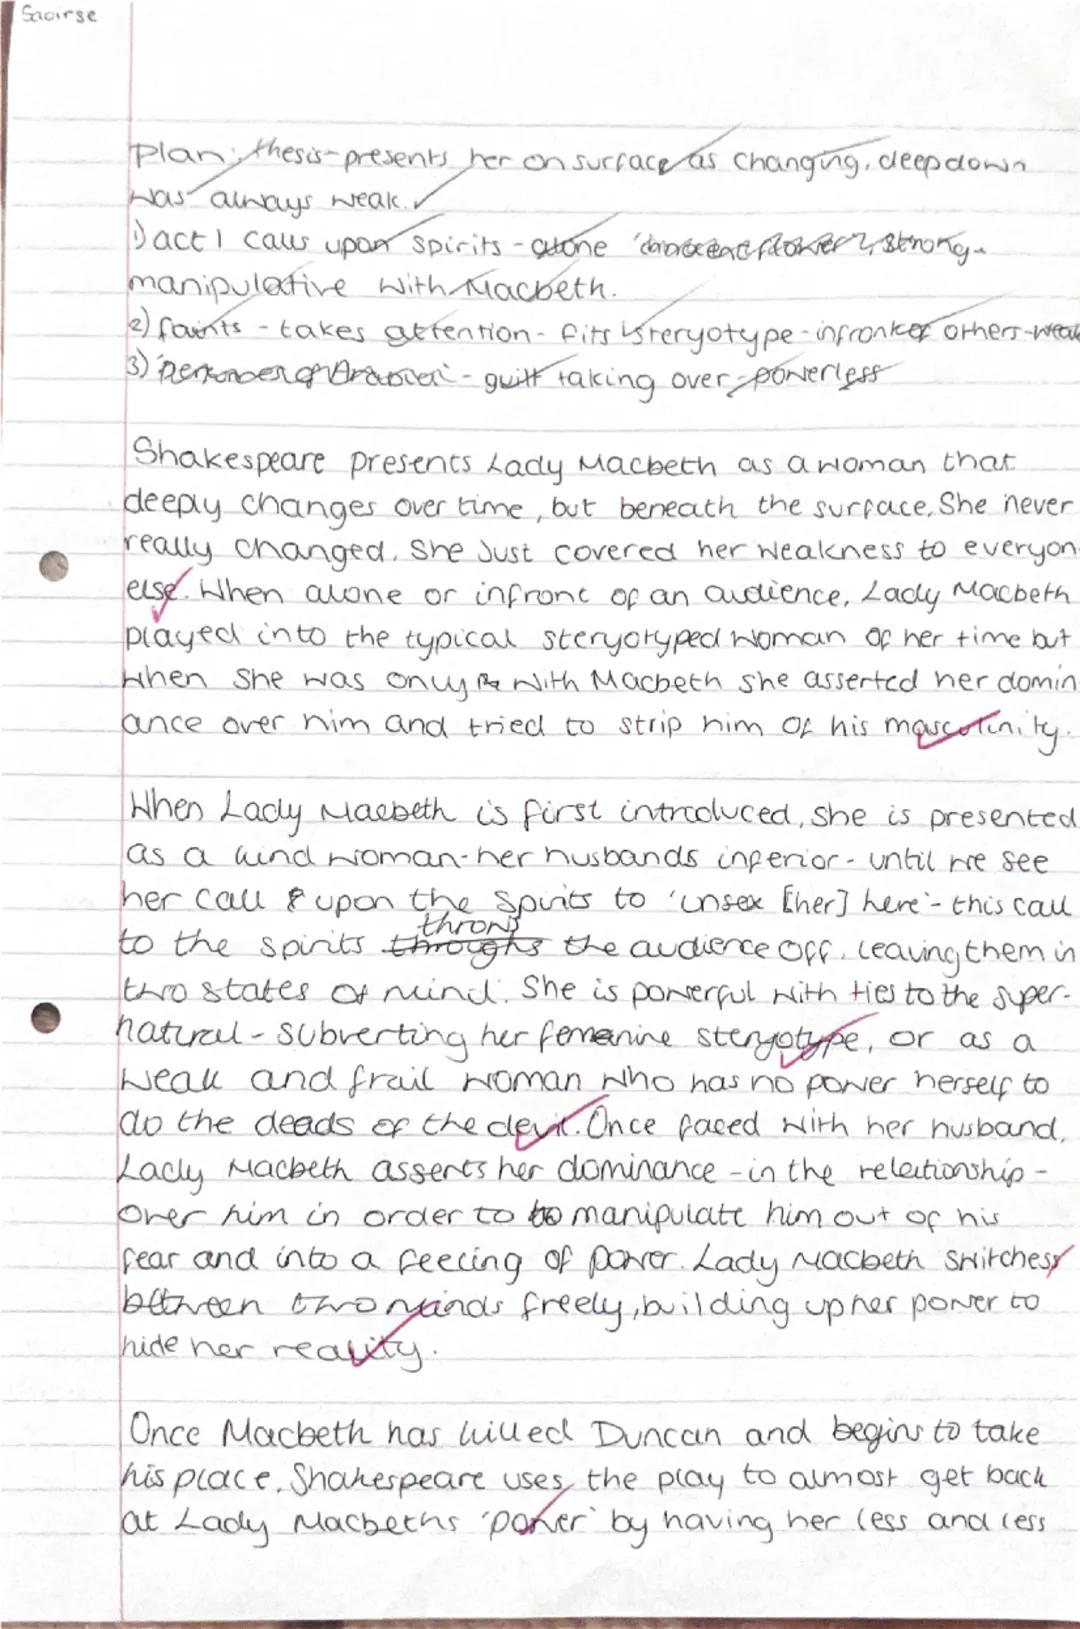 Saoirse
Plan: thesis-presents her on surface as changing, deepdown
was always weak.
1) act 1 calls upon spirits - alone 'innocent flower', strong -
manipulative with Macbeth.
2) faints - takes attention - fits steryotype - infront of others - weak
3) - guilt taking over - powerless
Shakespeare presents Lady Macbeth as a woman that
deeply changes over time, but beneath the surface, She never
really changed. She Just covered her weakness to everyon
else. When alone or infront of an audience, Lady Macbeth
played into the typical steryotyped woman of her time but
when She was only with Macbeth she asserted her domin-
ance over him and tried to strip him of his masculinity.
When Lady Macbeth is first introduced, She is presented
as a kind woman - her husbands inferior - until we see
her call upon the Spirits to 'unsex [her] here' - this call
to the spirits throws the audience off, leaving them in
two states of mind. She is powerful with ties to the super-
natural - subverting her femenine steryotype, or as a
weak and frail woman who has no power herself to
do the deads of the devil. Once faced with her husband,
Lady Macbeth asserts her dominance - in the relationship -
over him in order to manipulate him out of his
fear and into a feeling of power. Lady Macbeth switchess
between two minds freely, building up her power to
hide her reality.
Once Macbeth has killed Duncan and begins to take
his place, Shakespeare uses the play to almost get back
at Lady Macbeths 'power' by having her less and less